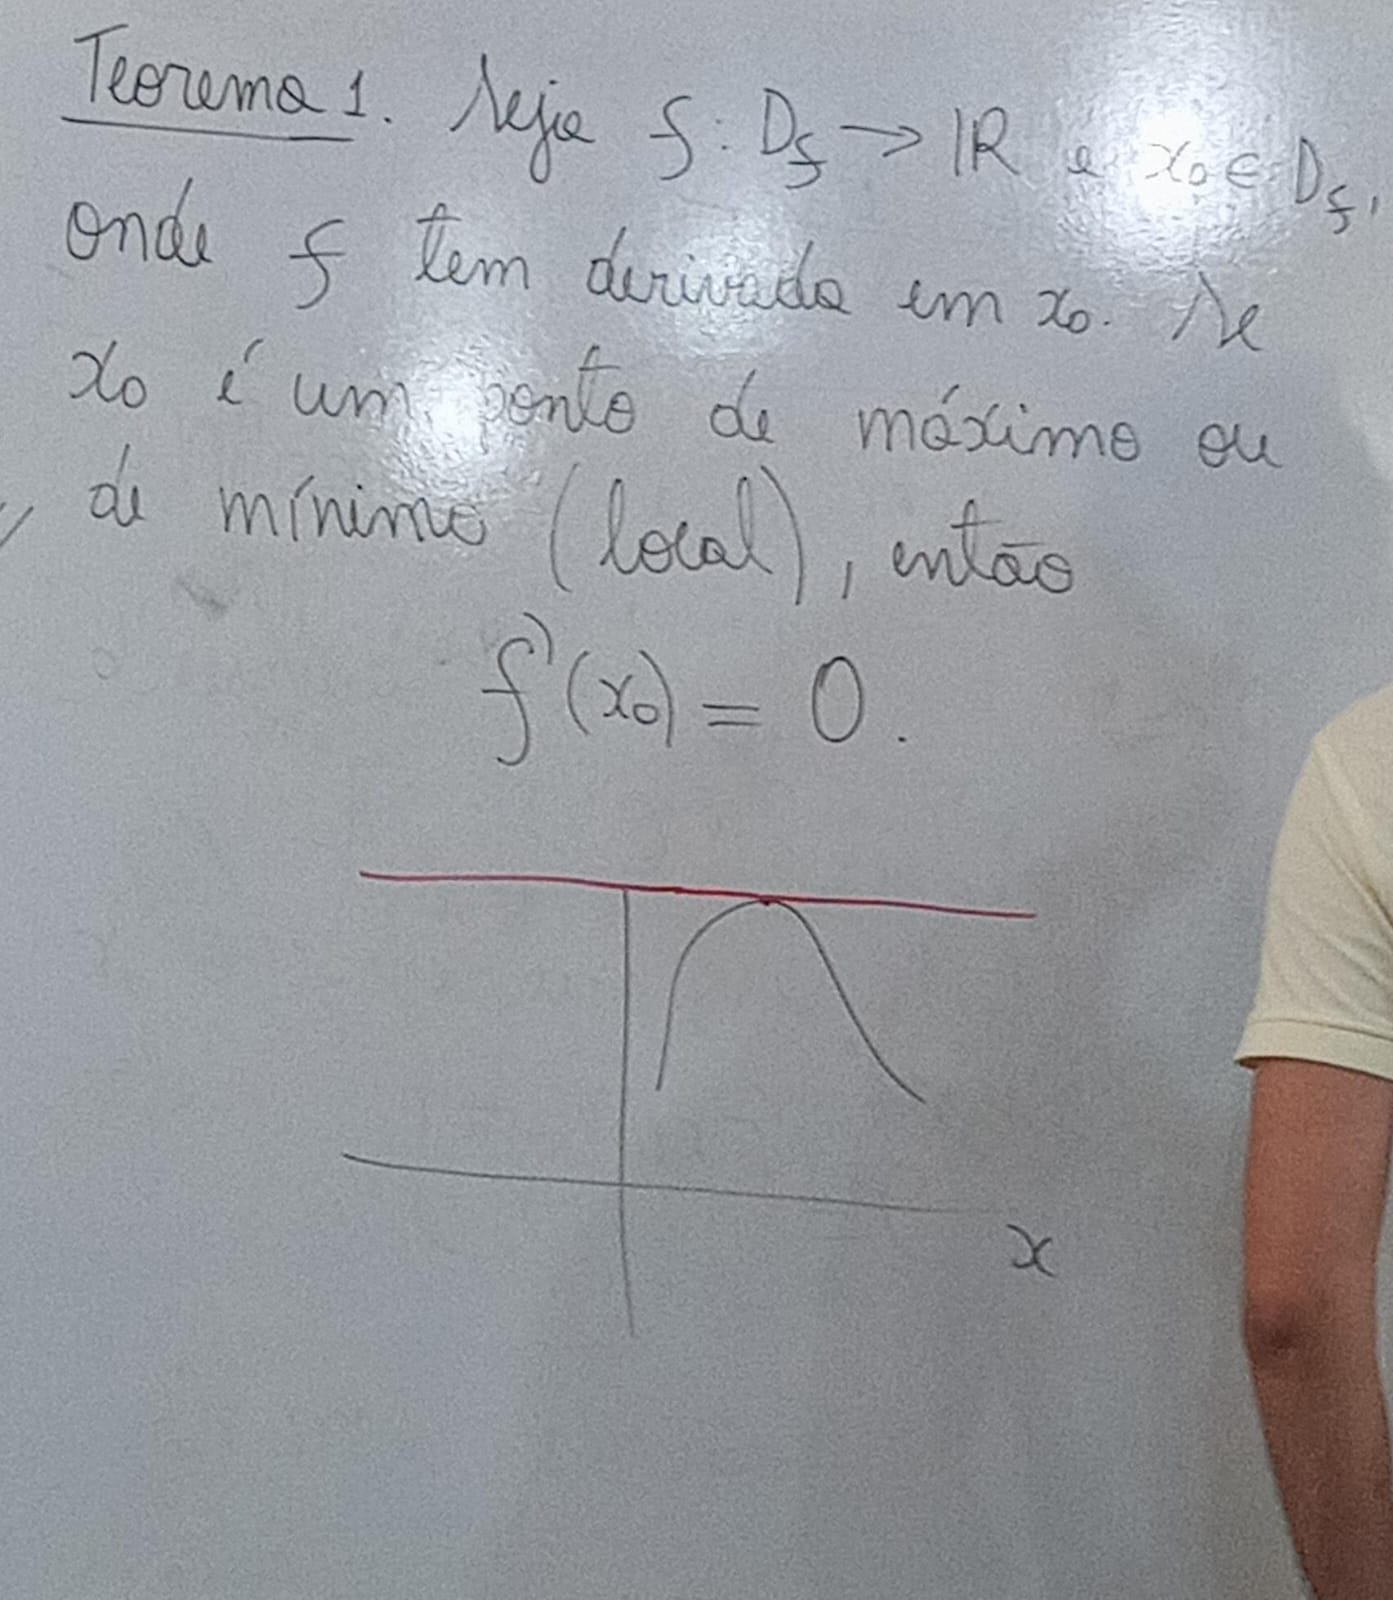 Teorema 1. Seja f: D_f → ℝ e x₀ ∈ D_f,
onde f tem derivada em x₀. Se
x₀ é um ponto de máximo ou
de mínimo (local), então
f'(x₀) = 0.
x